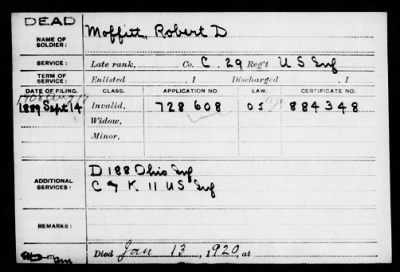 DEAD
NAME OF SOLDIER: Moffitt, Robert D
SERVICE: Late rank, Co. C. 29 Reg't U S Inf
TERM OF SERVICE: Enlisted , 1 Discharged , 1
DATE OF FILING. CLASS. APPLICATION NO. LAW. CERTIFICATE NO.
1889 Sept 14 Invalid, 728 608 884348
Widow,
Minor,
ADDITIONAL SERVICES: D 188 Ohio Inf
C & K. 11 U S Inf
REMARKS:
Died Jan 13, 1920, at